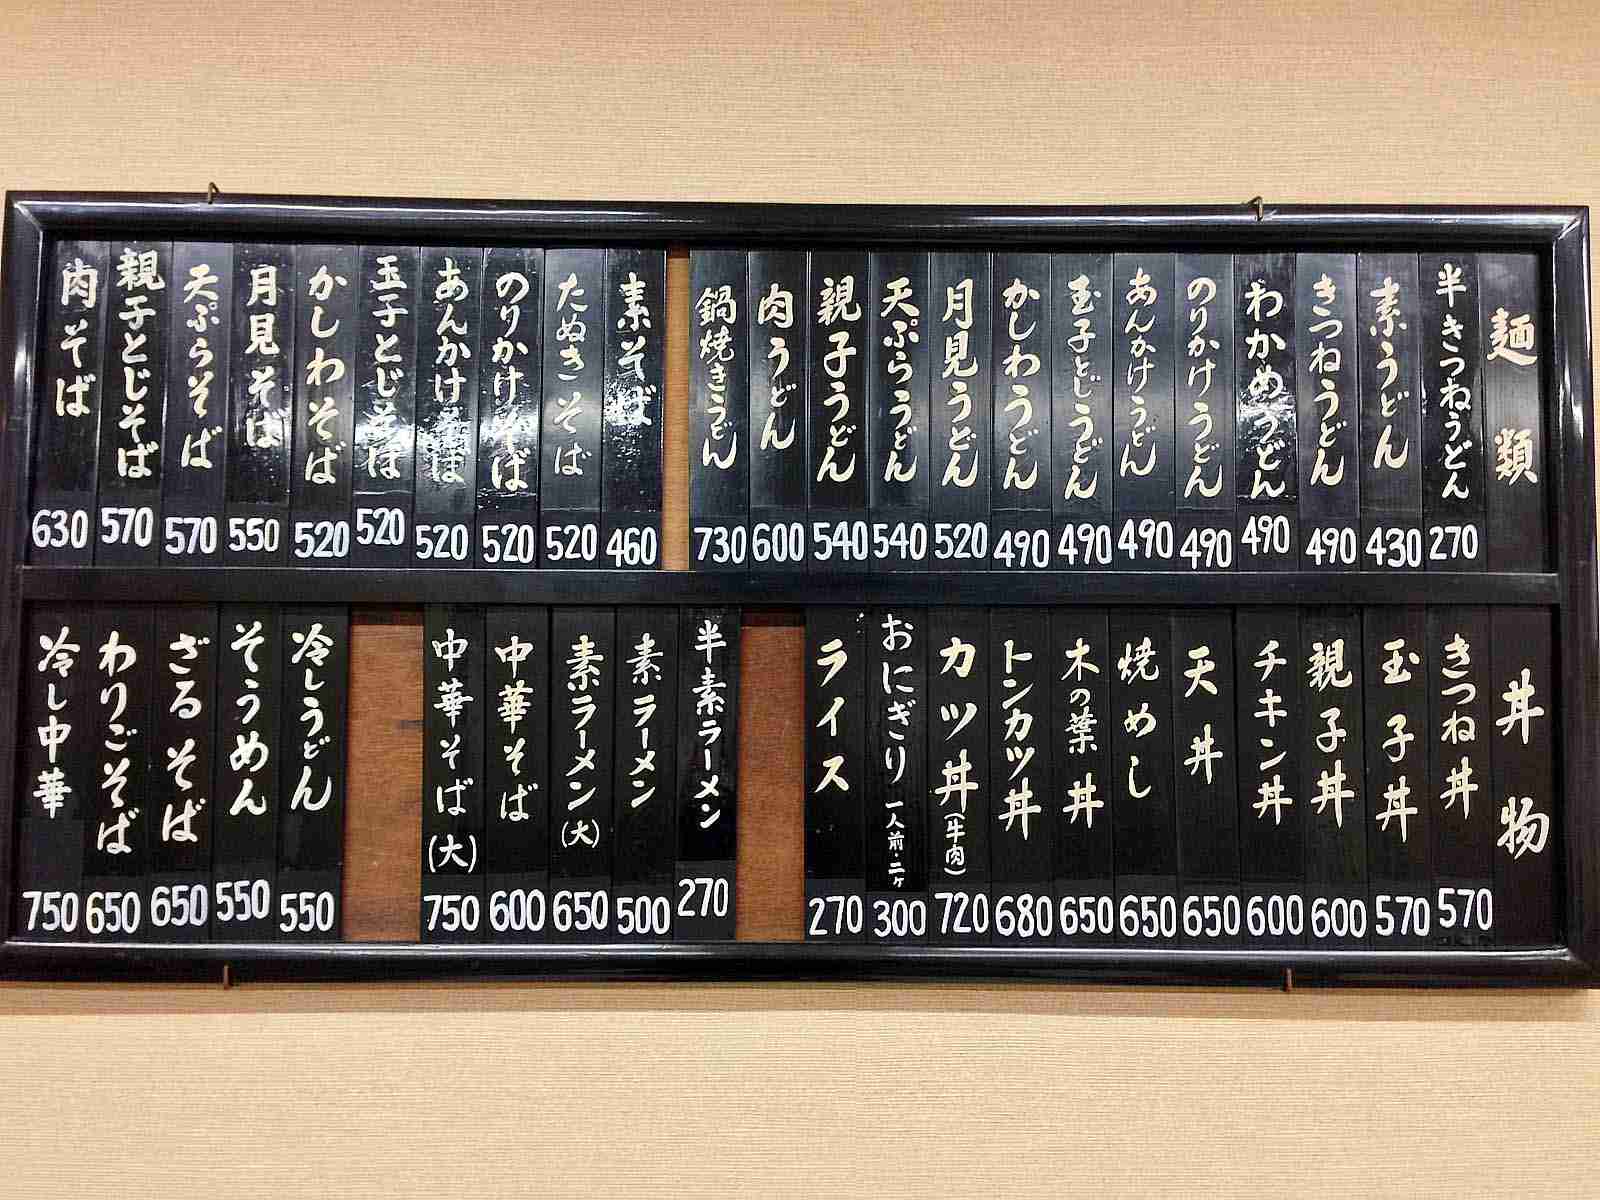 麺類
半きつねうどん 270
素うどん 430
きつねうどん 490
わかめうどん 490
のりかけうどん 490
あんかけうどん 490
玉子とじうどん 490
かしわうどん 490
月見うどん 520
天ぷらうどん 540
親子うどん 540
肉うどん 600
鍋焼きうどん 730
素そば 460
たぬきそば 520
のりかけそば 520
あんかけそば 520
玉子とじそば 520
かしわそば 520
月見そば 550
天ぷらそば 570
親子とじそば 570
肉そば 630
丼物
きつね丼 570
玉子丼 570
親子丼 600
チキン丼 600
天丼 650
焼めし 650
木の葉丼 650
トンカツ丼 680
カツ丼(牛肉) 720
おにぎり 一人前・二ヶ 300
ライス 270
半素ラーメン 270
素ラーメン 500
素ラーメン(大) 650
中華そば 600
中華そば(大) 750
冷しうどん 550
そうめん 550
ざるそば 650
わりごそば 650
冷し中華 750